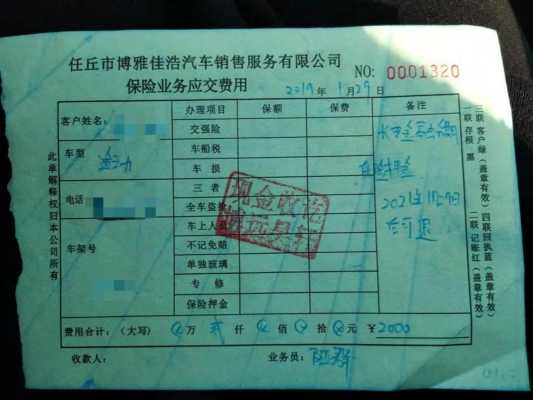 任丘市博雅佳浩汽车销售服务有限公司
保险业务应交费用
NO: 0001320
2019 年 1 月 29 日
客户姓名:
办理项目 保额 保费 备注
交强险
车船税
车型
车损
三者
电话
全车盗抢
车上人员
车架号
不记免赔
单独玻璃
专修
保险押金
2021年
可退
现金收讫
费用合计:(大写) 万 贰 仟 佰 拾 元 ¥2000
收款人: 业务员:
此单解释权归本公司所有
一联 存根 票 二联 记账红(盖章有效)
三联 客户绿(盖章有效) 四联回执蓝(盖章有效)